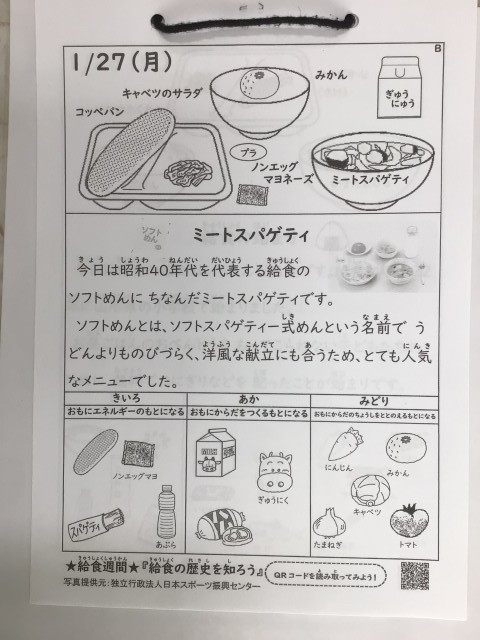 B
1/27(月)
みかん
キャベツのサラダ
コッペパン
ぎゅう
にゅう
プラ
ノンエッグ
マヨネーズ
ミートスパゲティ
ソフト
めん
ミートスパゲティ
今日は昭和40年代を代表する給食の
ソフトめんに ちなんだミートスパゲティです。
ソフトめんとは、ソフトスパゲティー式めんという名前で う
どんよりものびづらく、洋風な献立にも合うため、とても人気
なメニューでした。
きいろ
あか
みどり
おもにエネルギーのもとになる
おもにからだをつくるもとになる
おもにからだのちょうしをととのえるもとになる
MILK
にんじん
みかん
ノンエッグマヨ
ぎゅうにく
キャベツ
スパゲティ
あぶら
たまねぎ
トマト
★給食週間★『給食の歴史を知ろう』
QRコードを読み取ってみよう!
写真提供元:独立行政法人日本スポーツ振興センター